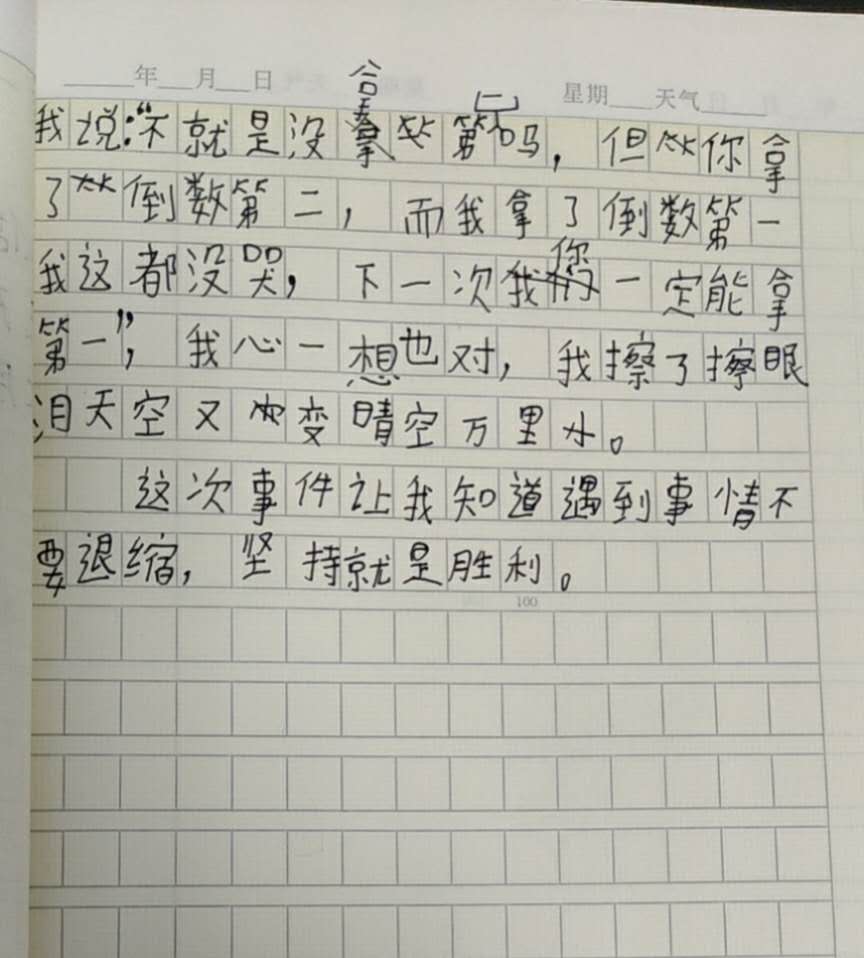 年 月 日 星期 天气
我说:“不就是没拿第一吗,但你拿
了倒数第二,而我拿了倒数第一
我这都没哭,下一次你一定能拿
第一”,我心一想也对,我擦了擦眼
泪天空又变晴空万里。
这次事件让我知道遇到事情不
要退缩,坚持就是胜利。
100